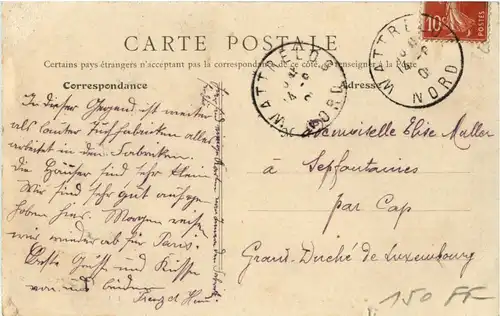 CARTE POSTALE
Certains pays étrangers n'acceptant pas la correspondance de ce côté, se renseigner à la Poste
Correspondance
Adresse
10c
WATTRELOS
NORD
WATTRELOS
NORD
In dieser Gegend ist weiter
als lauter Tuchfabriken alles
arbeitet in den Fabriken.
Die Häuser sind sehr klein
Wir sind sehr gut aufge-
hoben hier. Morgen reisen
wir wieder ab für Paris.
Beste Grüsse und Küsse
von uns beiden
Mademoiselle Elise Muller
à Sepfontaines
par Cap
Grand-Duché de Luxembourg
150 FF